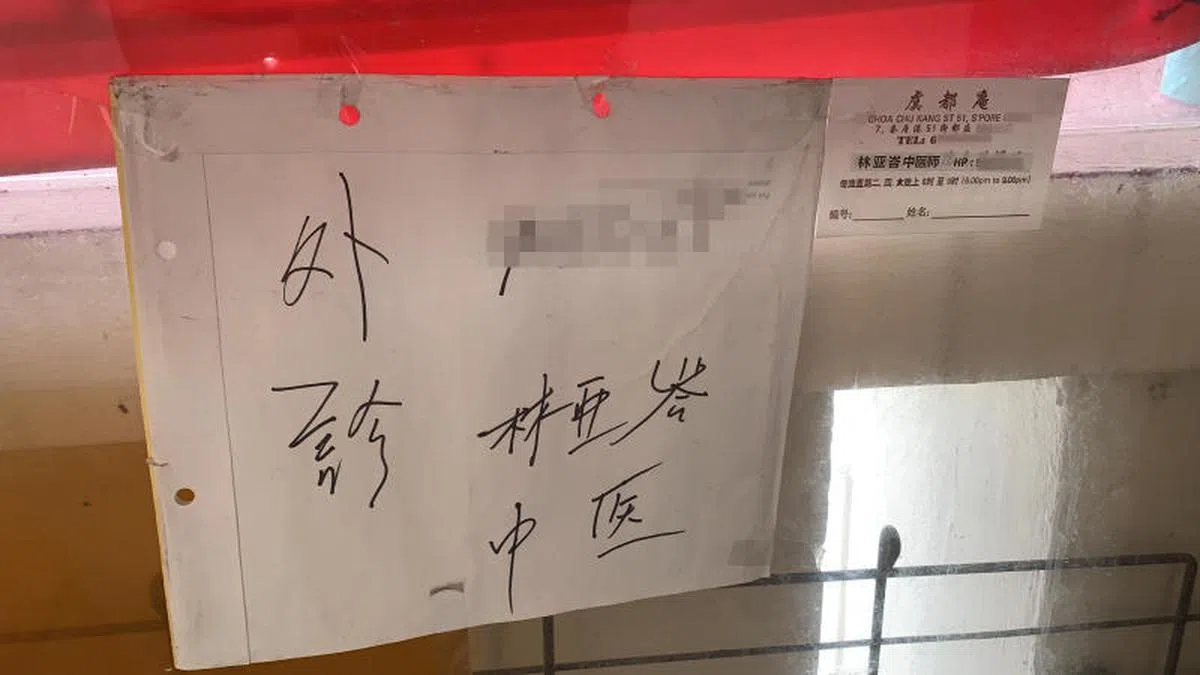 外
診
林亚峇
中医
虞都庵
CHOA CHU KANG ST 51, S'PORE
7, 蔡厝港 51 街邮区
TEL: 6
林亚峇中医师 HP:
每逢星期二, 四, 六晚上 6时 至 9时 (6.00pm to 9.00pm)
编号: 姓名: